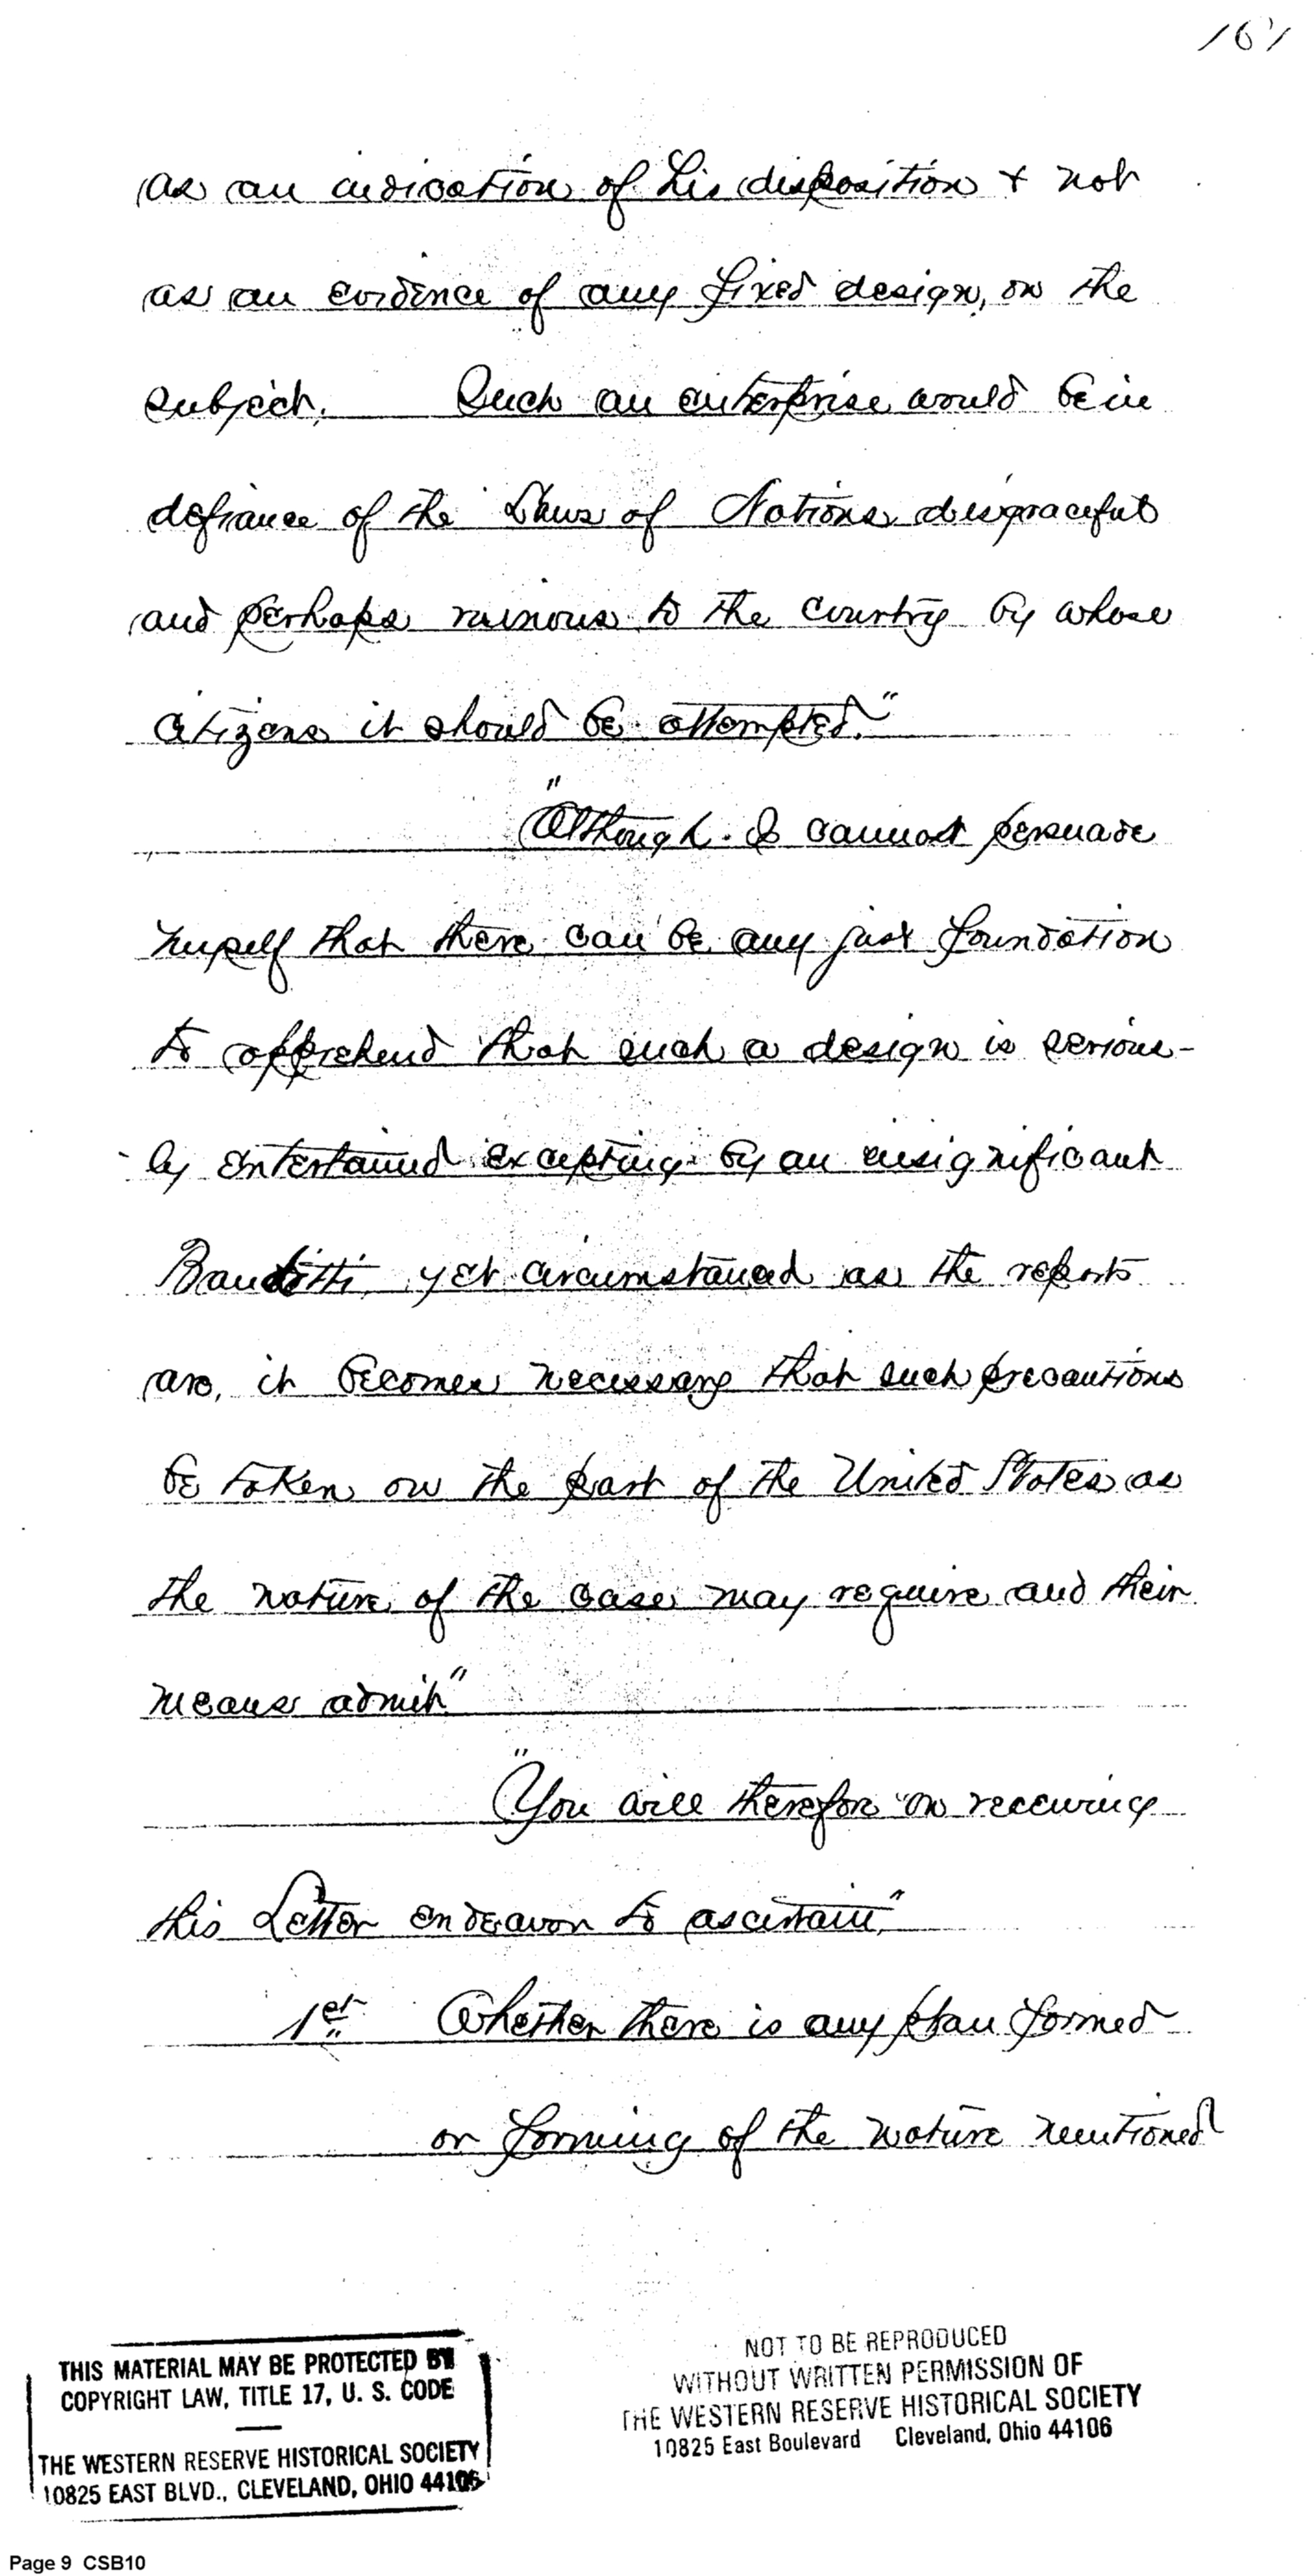 161
as an indication of his disposition & not
as an evidence of any fixed design, on the
subject. Such an enterprise would be in
defiance of the Laws of Nations disgraceful
and perhaps ruinous to the country by whose
citizens it should be attempted."
"Although I cannot persuade
myself that there can be any just foundation
to apprehend that such a design is serious-
ly entertained excepting by an insignificant
Banditti, yet circumstanced as the reports
are, it becomes necessary that such precautions
be taken on the part of the United States as
the nature of the case may require and their
means admit"
"You will therefore on receiving
this Letter endeavor to ascertain,"
1st Whether there is any plan formed
or forming of the nature mentioned
THIS MATERIAL MAY BE PROTECTED BY
COPYRIGHT LAW, TITLE 17, U. S. CODE
THE WESTERN RESERVE HISTORICAL SOCIETY
10825 EAST BLVD., CLEVELAND, OHIO 44106
NOT TO BE REPRODUCED
WITHOUT WRITTEN PERMISSION OF
THE WESTERN RESERVE HISTORICAL SOCIETY
10825 East Boulevard Cleveland, Ohio 44106
Page 9 CSB10